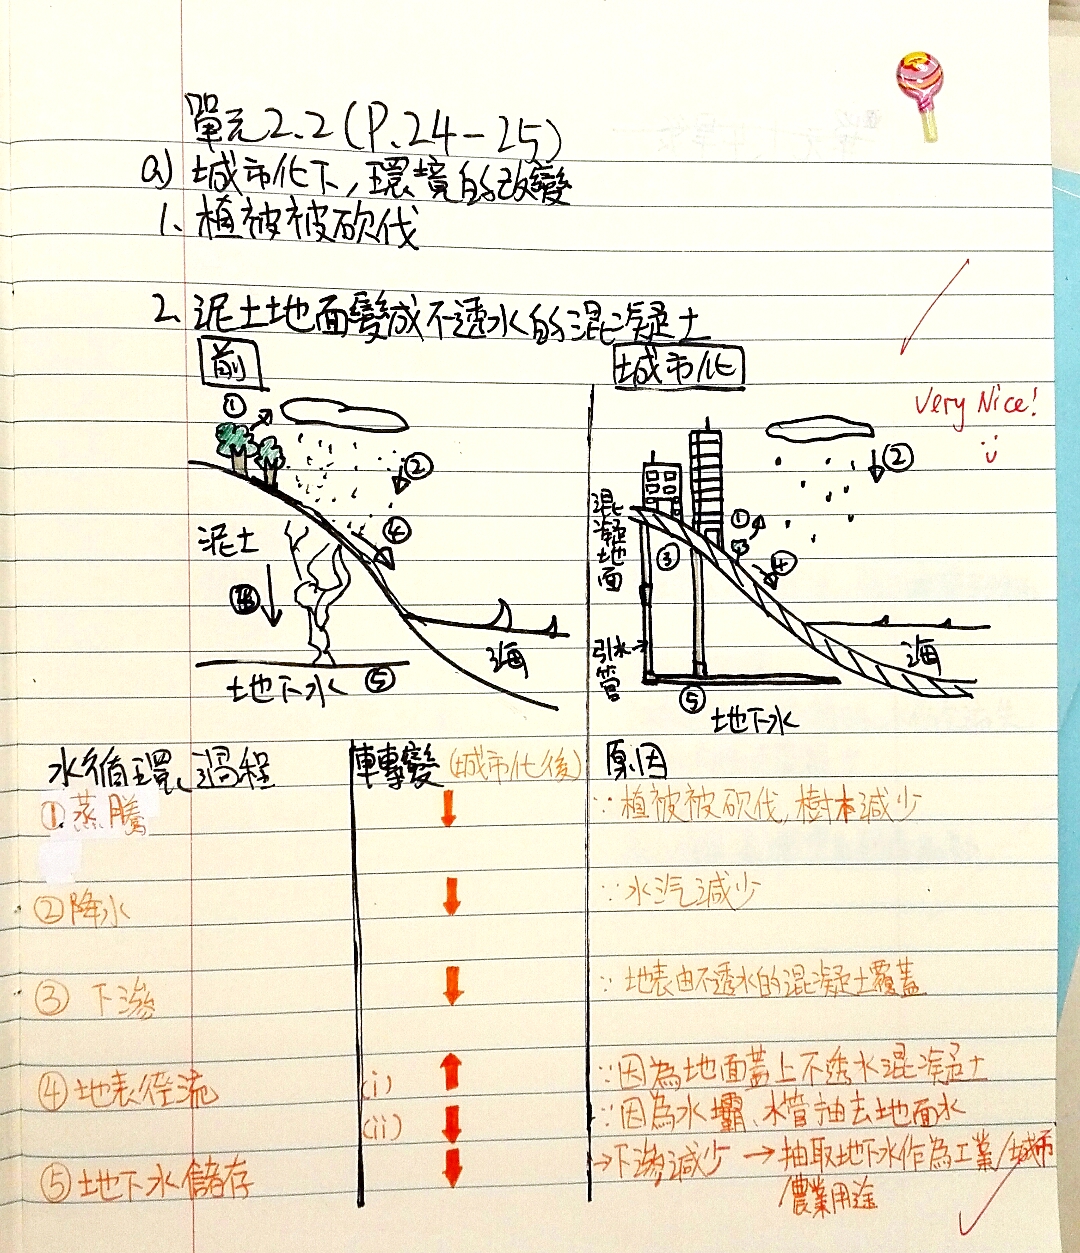 單元2.2(P.24-25)
a) 城市化下,環境的改變
1. 植被被砍伐
2. 泥土地面變成不透水的混凝土
前
城市化
Very Nice!
①
②
④
泥土
③
海
地下水 ⑤
②
混凝地面
①
③
④
引水管
海
⑤
地下水
水循環過程 轉變(城市化後) 原因
①蒸騰 ↓ ∵植被被砍伐,樹木減少
②降水 ↓ ∵水汽減少
③ 下滲 ↓ ∵地表由不透水的混凝土覆蓋
④地表徑流 (i) ↑ ∵因為地面蓋上不透水混凝土
(ii) ↓ ∵因為水壩、水管抽去地面水
⑤地下水儲存 ↓ →下滲減少 →抽取地下水作為工業/城市
/農業用途